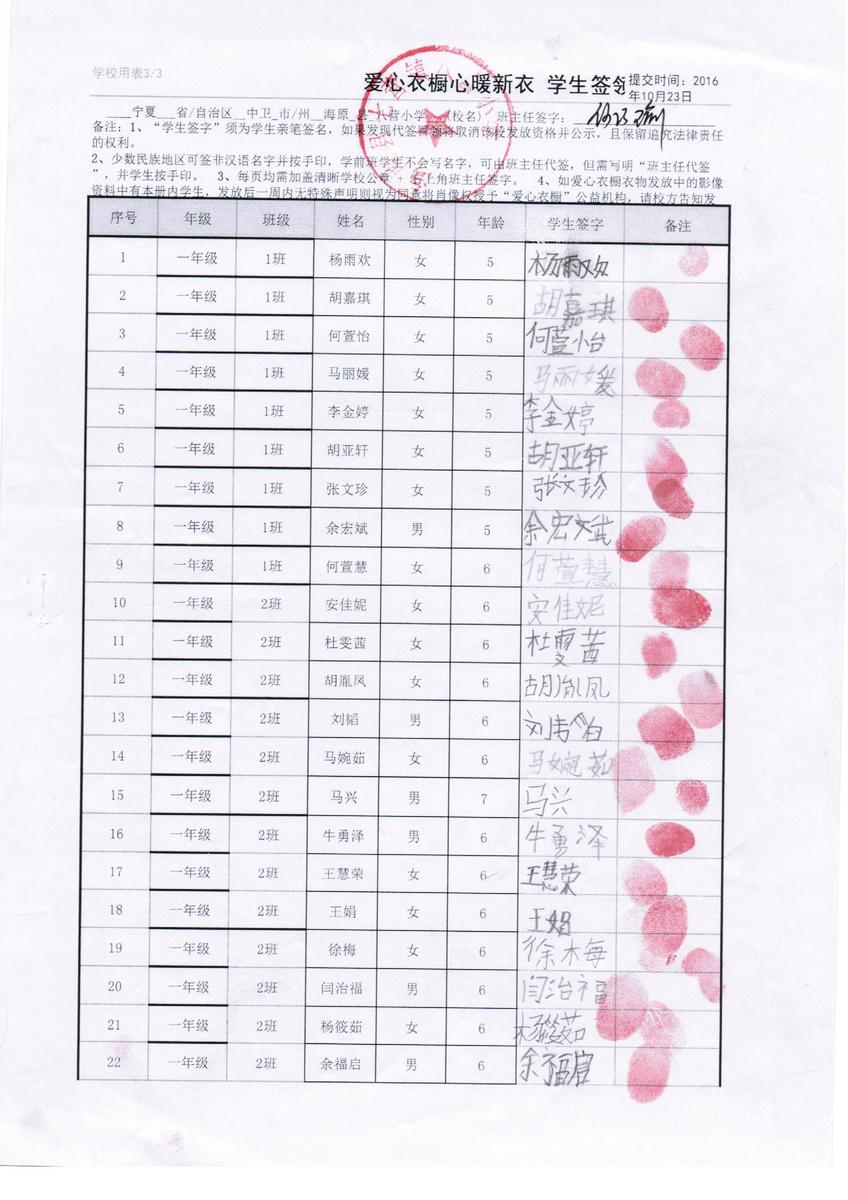 学校用表3/3
爱心衣橱心暖新衣 学生签领
提交时间: 2016
年10月23日
宁夏 省/自治区 中卫_市/州 海原_县 六营小学 (校名) 班主任签字:
备注:1、“学生签字”须为学生亲笔签名,如果发现代签冒领将取消该校发放资格并公示,且保留追究法律责任
的权利。
2、少数民族地区可签非汉语名字并按手印,学前班学生不会写名字,可由班主任代签,但需写明“班主任代签
”,并学生按手印。 3、每页均需加盖清晰学校公章 + 右上角班主任签字。 4、如爱心衣橱衣物发放中的影像
资料中有本册内学生,发放后一周内无特殊声明则视为同意将肖像权授予“爱心衣橱”公益机构,请校方告知发
序号 年级 班级 姓名 性别 年龄 学生签字 备注
1 一年级 1班 杨雨欢 女 5 杨雨欢
2 一年级 1班 胡嘉琪 女 5 胡嘉琪
3 一年级 1班 何萱怡 女 5 何萱怡
4 一年级 1班 马丽媛 女 5 马丽媛
5 一年级 1班 李金婷 女 5 李金婷
6 一年级 1班 胡亚轩 女 5 胡亚轩
7 一年级 1班 张文珍 女 5 张文珍
8 一年级 1班 余宏斌 男 5 余宏斌
9 一年级 1班 何萱慧 女 6 何萱慧
10 一年级 2班 安佳妮 女 6 安佳妮
11 一年级 2班 杜雯茜 女 6 杜雯茜
12 一年级 2班 胡胤凤 女 6 胡胤凤
13 一年级 2班 刘韬 男 6 刘韬
14 一年级 2班 马婉茹 女 6 马婉茹
15 一年级 2班 马兴 男 7 马兴
16 一年级 2班 牛勇泽 男 6 牛勇泽
17 一年级 2班 王慧荣 女 6 王慧荣
18 一年级 2班 王娟 女 6 王娟
19 一年级 2班 徐梅 女 6 徐梅
20 一年级 2班 闫治福 男 6 闫治福
21 一年级 2班 杨筱茹 女 6 杨筱茹
22 一年级 2班 余福启 男 6 余福启